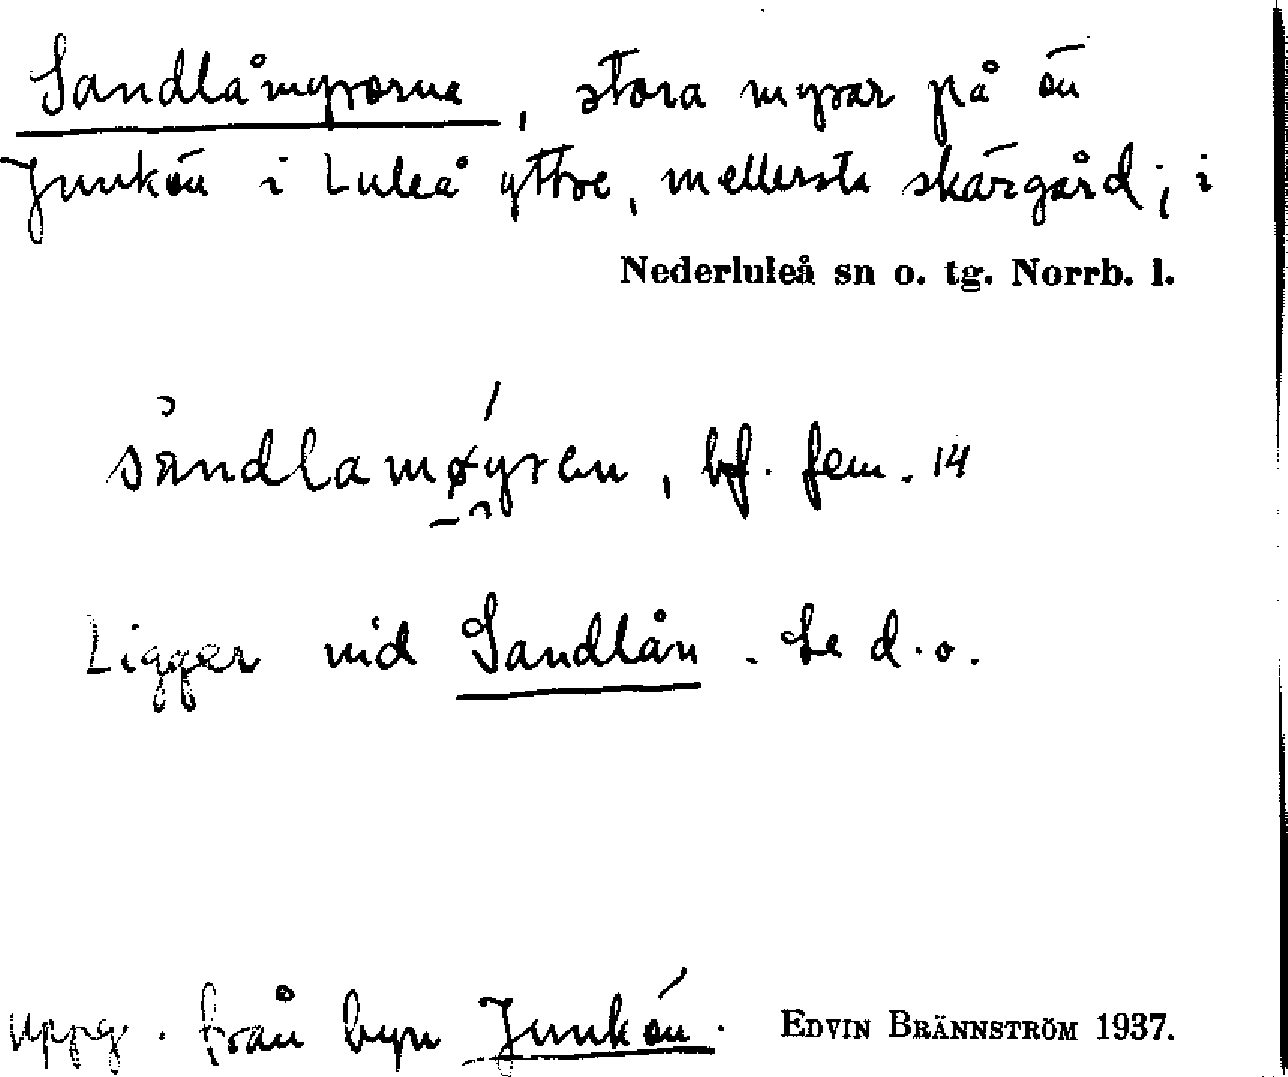 Sandlåmyrorna, stora myrar på ön
Junkön i Luleå yttre, mellersta skärgård; i
Nederluleå sn o. tg. Norrb. l.
sandlamøyren, bf. fem. 14
Ligger vid Sandlån. Se d.o.
Uppg. från byn Junkön. EDVIN BRÄNNSTRÖM 1937.